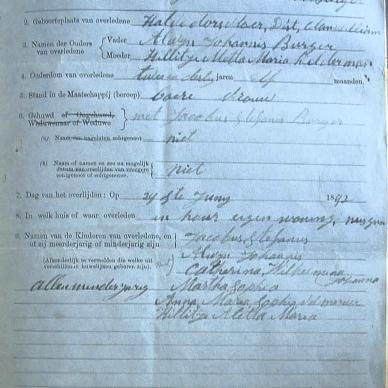 2. Geboorteplaats van overledene Halvedorschloer, Dist. Clanwilliam
3. Namen der Ouders van overledene
Vader Alwyn Johannis Burger
Moeder Hillitje Aletta Maria
4. Ouderdom van overledene jaren elf maanden.
5. Stand in de Maatschappij (beroep) boere vrouw
6. Gehuwd of Ongehuwd, Weduwenaar of Weduwe met Jacobus Stefanus Burger
(a) Naam van nagelaten echtgenoot niet
(b) Naam of namen en zoo na mogelijk datum van overlijden van vroegere echtgenoot of echtgenoote. niet
7. Dag van het overlijden: Op 24ste Juny 1892
8. In welk huis of waar overleden in haar eigen woning,
9. Namen van de Kinderen van overledene, en of zij meerderjarig of minderjarig zijn Jacobus Stefanus
Alwyn Johannis
(Afzonderlijk te vermelden die welke uit verschillende huwelijken geboren zijn). Catherina, Wilhelmina Johanna
allen minderjarig Martha Sophia
Anna Maria Sophia
Hillitje Aletta Maria